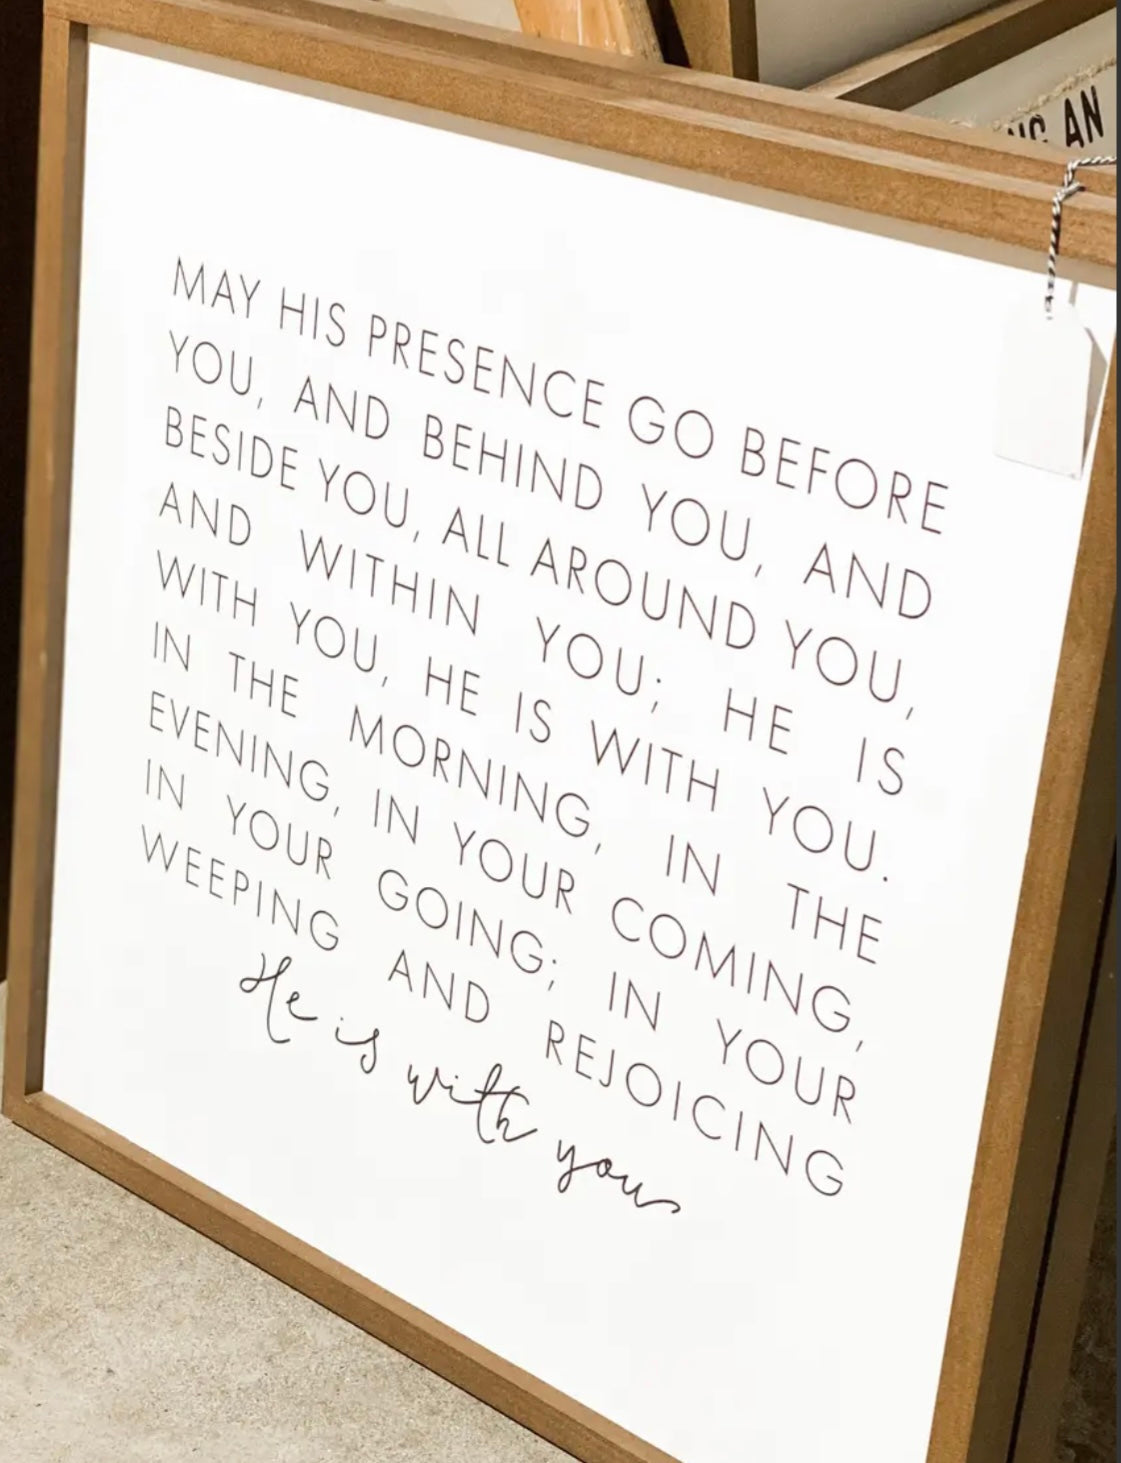 NG AN
MAY HIS PRESENCE GO BEFORE
YOU, AND BEHIND YOU, AND
BESIDE YOU, ALL AROUND YOU,
AND WITHIN YOU; HE IS
WITH YOU, HE IS WITH YOU.
IN THE MORNING, IN THE
EVENING, IN YOUR COMING,
IN YOUR GOING; IN YOUR
WEEPING AND REJOICING
He is with you